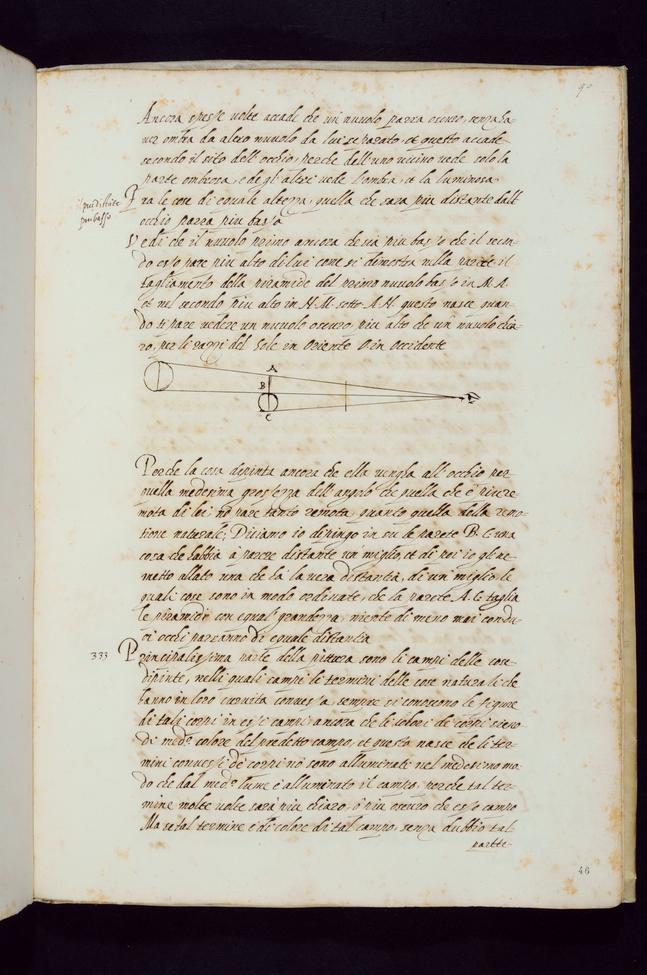 90
Ancora spesse volte accade che un nuvolo parra oscuro, senza ha
ver ombra da altro nuvolo da lui separato, et questo accade
secondo il sito dell'occhio, perche dell'uno vicino vede solo la
parte ombrosa, e de gl'altri vede l'ombra, et la luminosa
Fra le cose di equale altezza, quella che sara piu distante dall'
occhio parra piu bassa
Vedi che il nuvolo primo ancora che sia piu basso che il secon-
do esso pare piu alto di lui come si dimostra nella parete il
tagliamento della piramide del primo nuvolo basso in M.A.
et nel secondo piu alto in H.M. sotto A.H. questo nasce quan-
do ti pare vedere un nuvolo oscuro piu alto che un nuvolo chia-
ro, per li razzi del Sole in Oriente O in Occidente
A
B
C
Perche la cosa depinta ancora che ella vengha all'occhio per
quella medesima grossezza dell'angolo che quella che è piu re-
mota di lei nō pare tanto remota, quanto quella della remo-
tione naturale; Diciamo io depingo in su le parete B.C una
cosa che habbia a parere distante un miglio, et di poi io gle ne
metto allato una che ha la vera distantia, di un miglio, le
quali cose sono in modo ordinate, che la parete A.C taglia
le piramidi con equal grandezza, niente di meno mai con du-
oi occhi parranno di equale distantia
333 Principalissima parte della pittura sono li campi delle cose
dipinte, nelli quali campi li termini delle cose naturali che
hanno in loro curvita convessa, sempre si conoscono le figure
di tali corpi in essi campi, ancora che li colori de corpi sieno
di med.º colore del predetto campo, et questo nasce che li ter-
mini convessi de corpi nō sono alluminati nel medesimo mo-
do che dal med.º lume è alluminato il campo, perche tal ter-
mine molte volte sarà piu chiaro, ò piu oscuro che esso campo
Ma se tal termine è di colore di tal campo, senza dubbio tal
partte
46